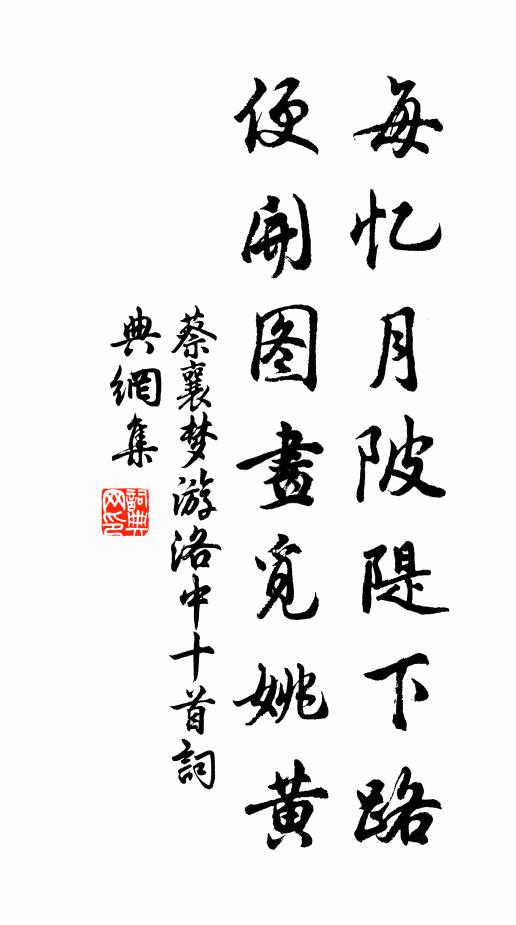 每忆月陂隄下路
便開图畫觅姚黄
蔡襄梦游洛中十首詞
典網集
詞典网印